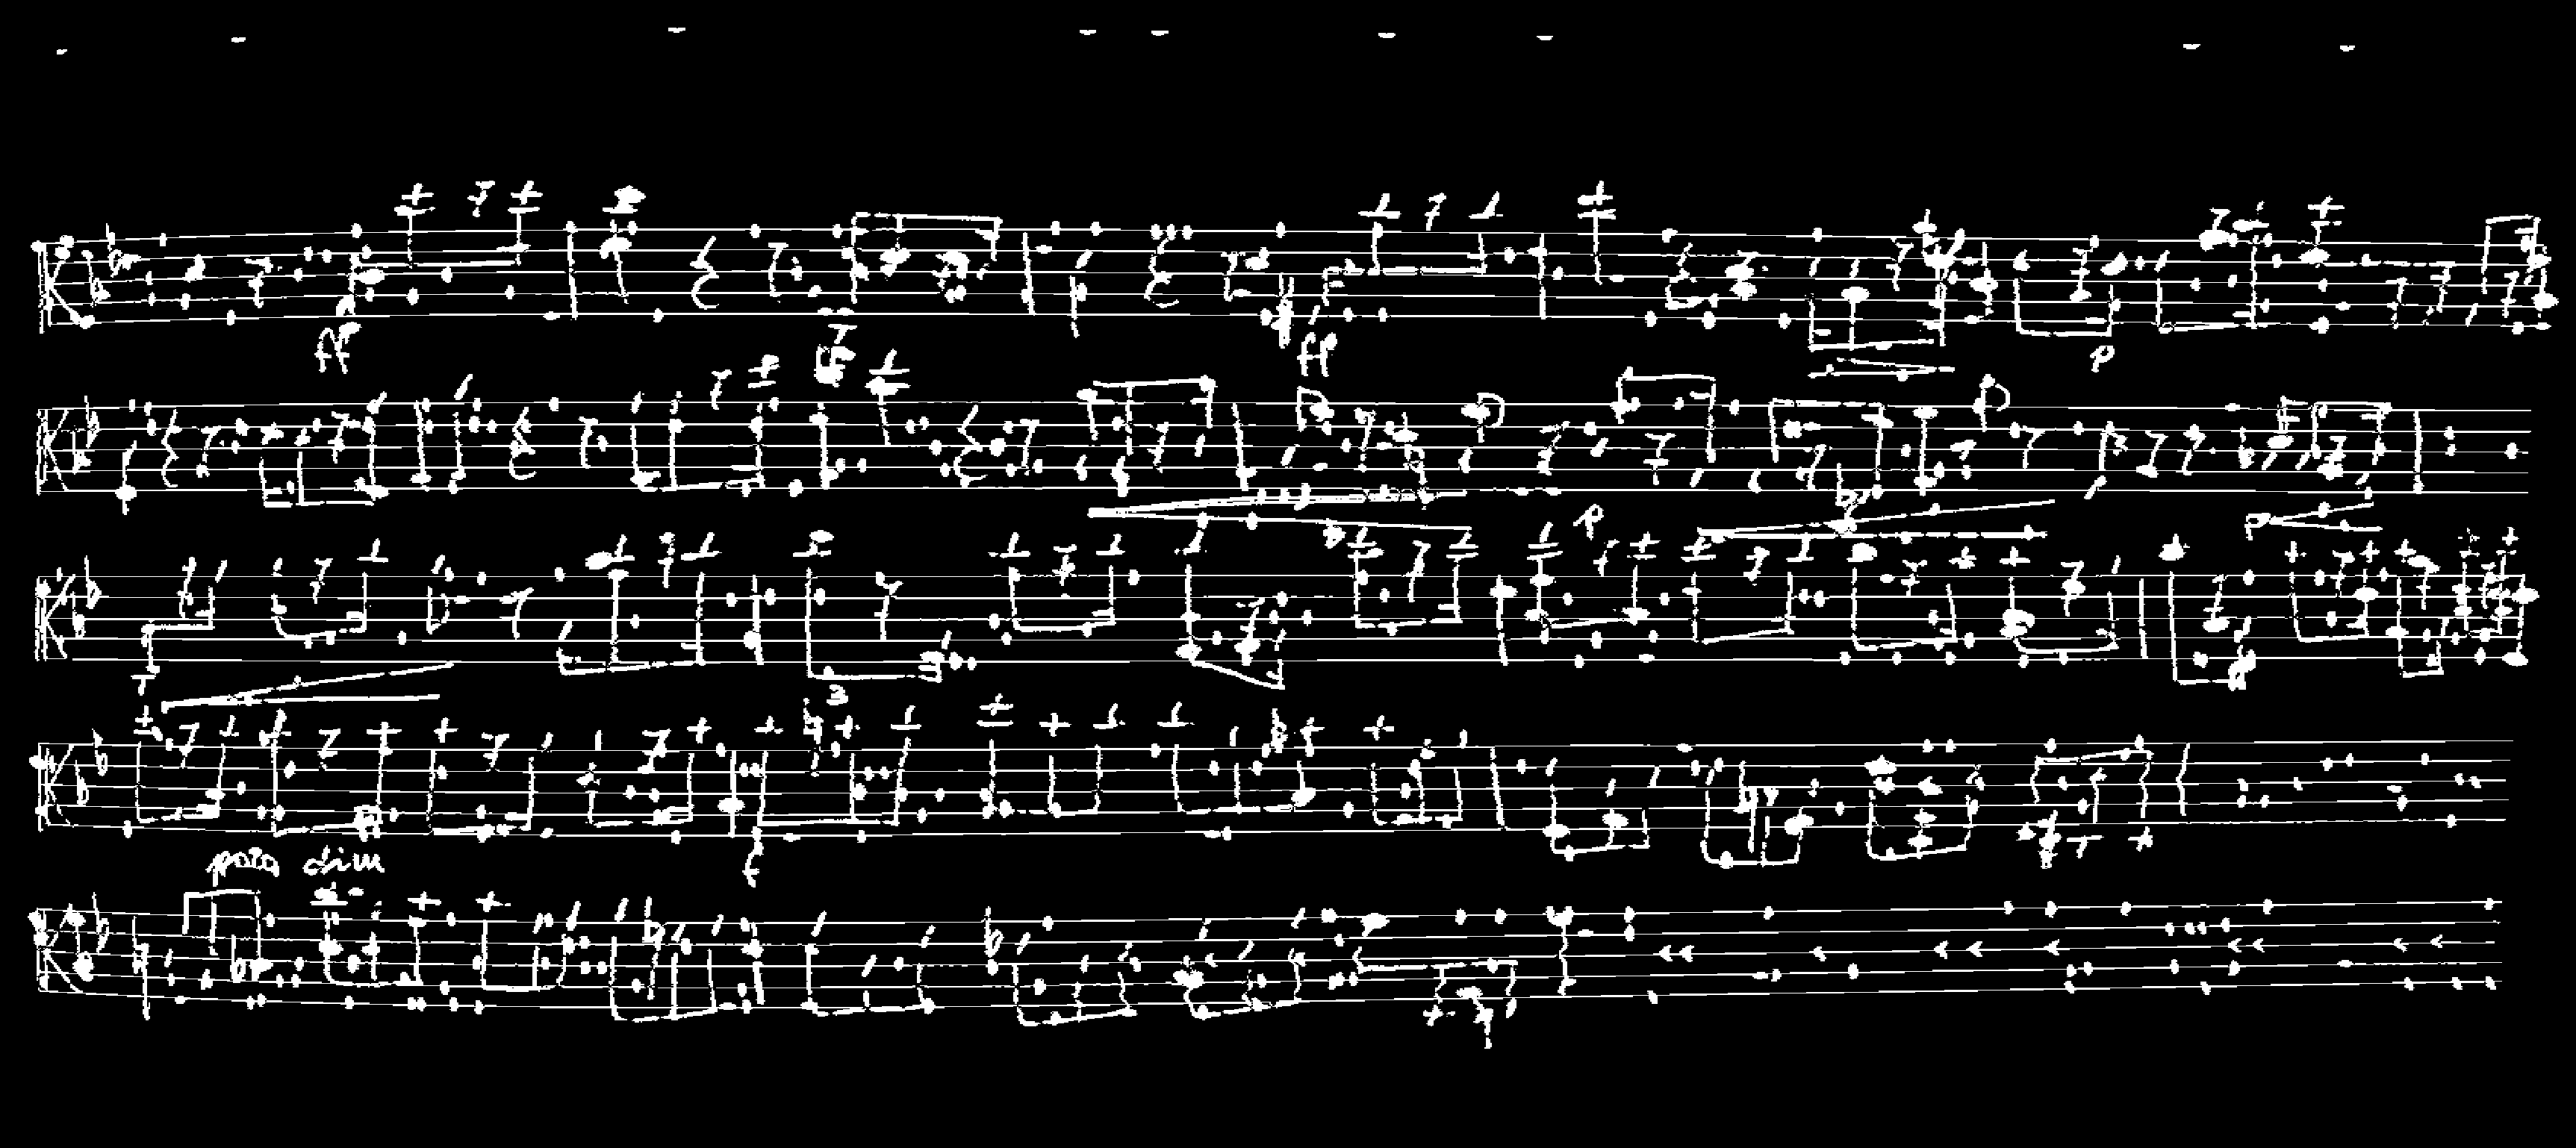 ff ff p
p p
3
poco dim f